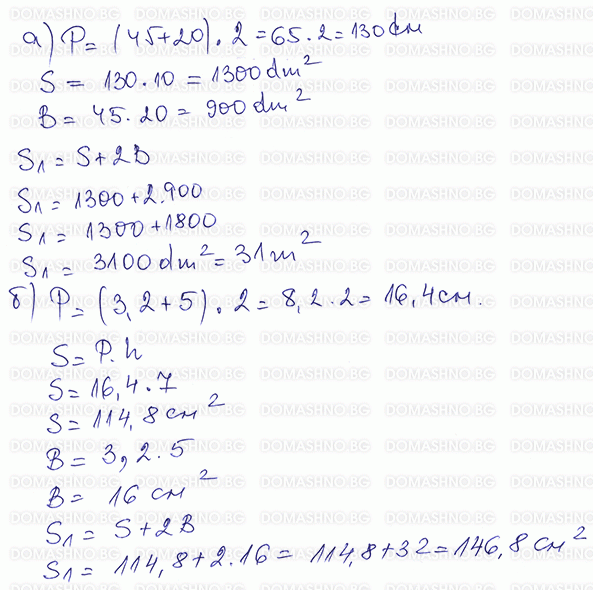 а) P = (45+20) . 2 = 65 . 2 = 130 dm
S = 130 . 10 = 1300 dm²
B = 45 . 20 = 900 dm²
S₁ = S + 2B
S₁ = 1300 + 2.900
S₁ = 1300 + 1800
S₁ = 3100 dm² = 31 m²
б) P = (3,2 + 5) . 2 = 8,2 . 2 = 16,4 см.
S = P. h
S = 16,4 . 7
S = 114,8 см²
B = 3,2 . 5
B = 16 см²
S₁ = S + 2B
S₁ = 114,8 + 2.16 = 114,8 + 32 = 146,8 см²
DOMASHNO.BG